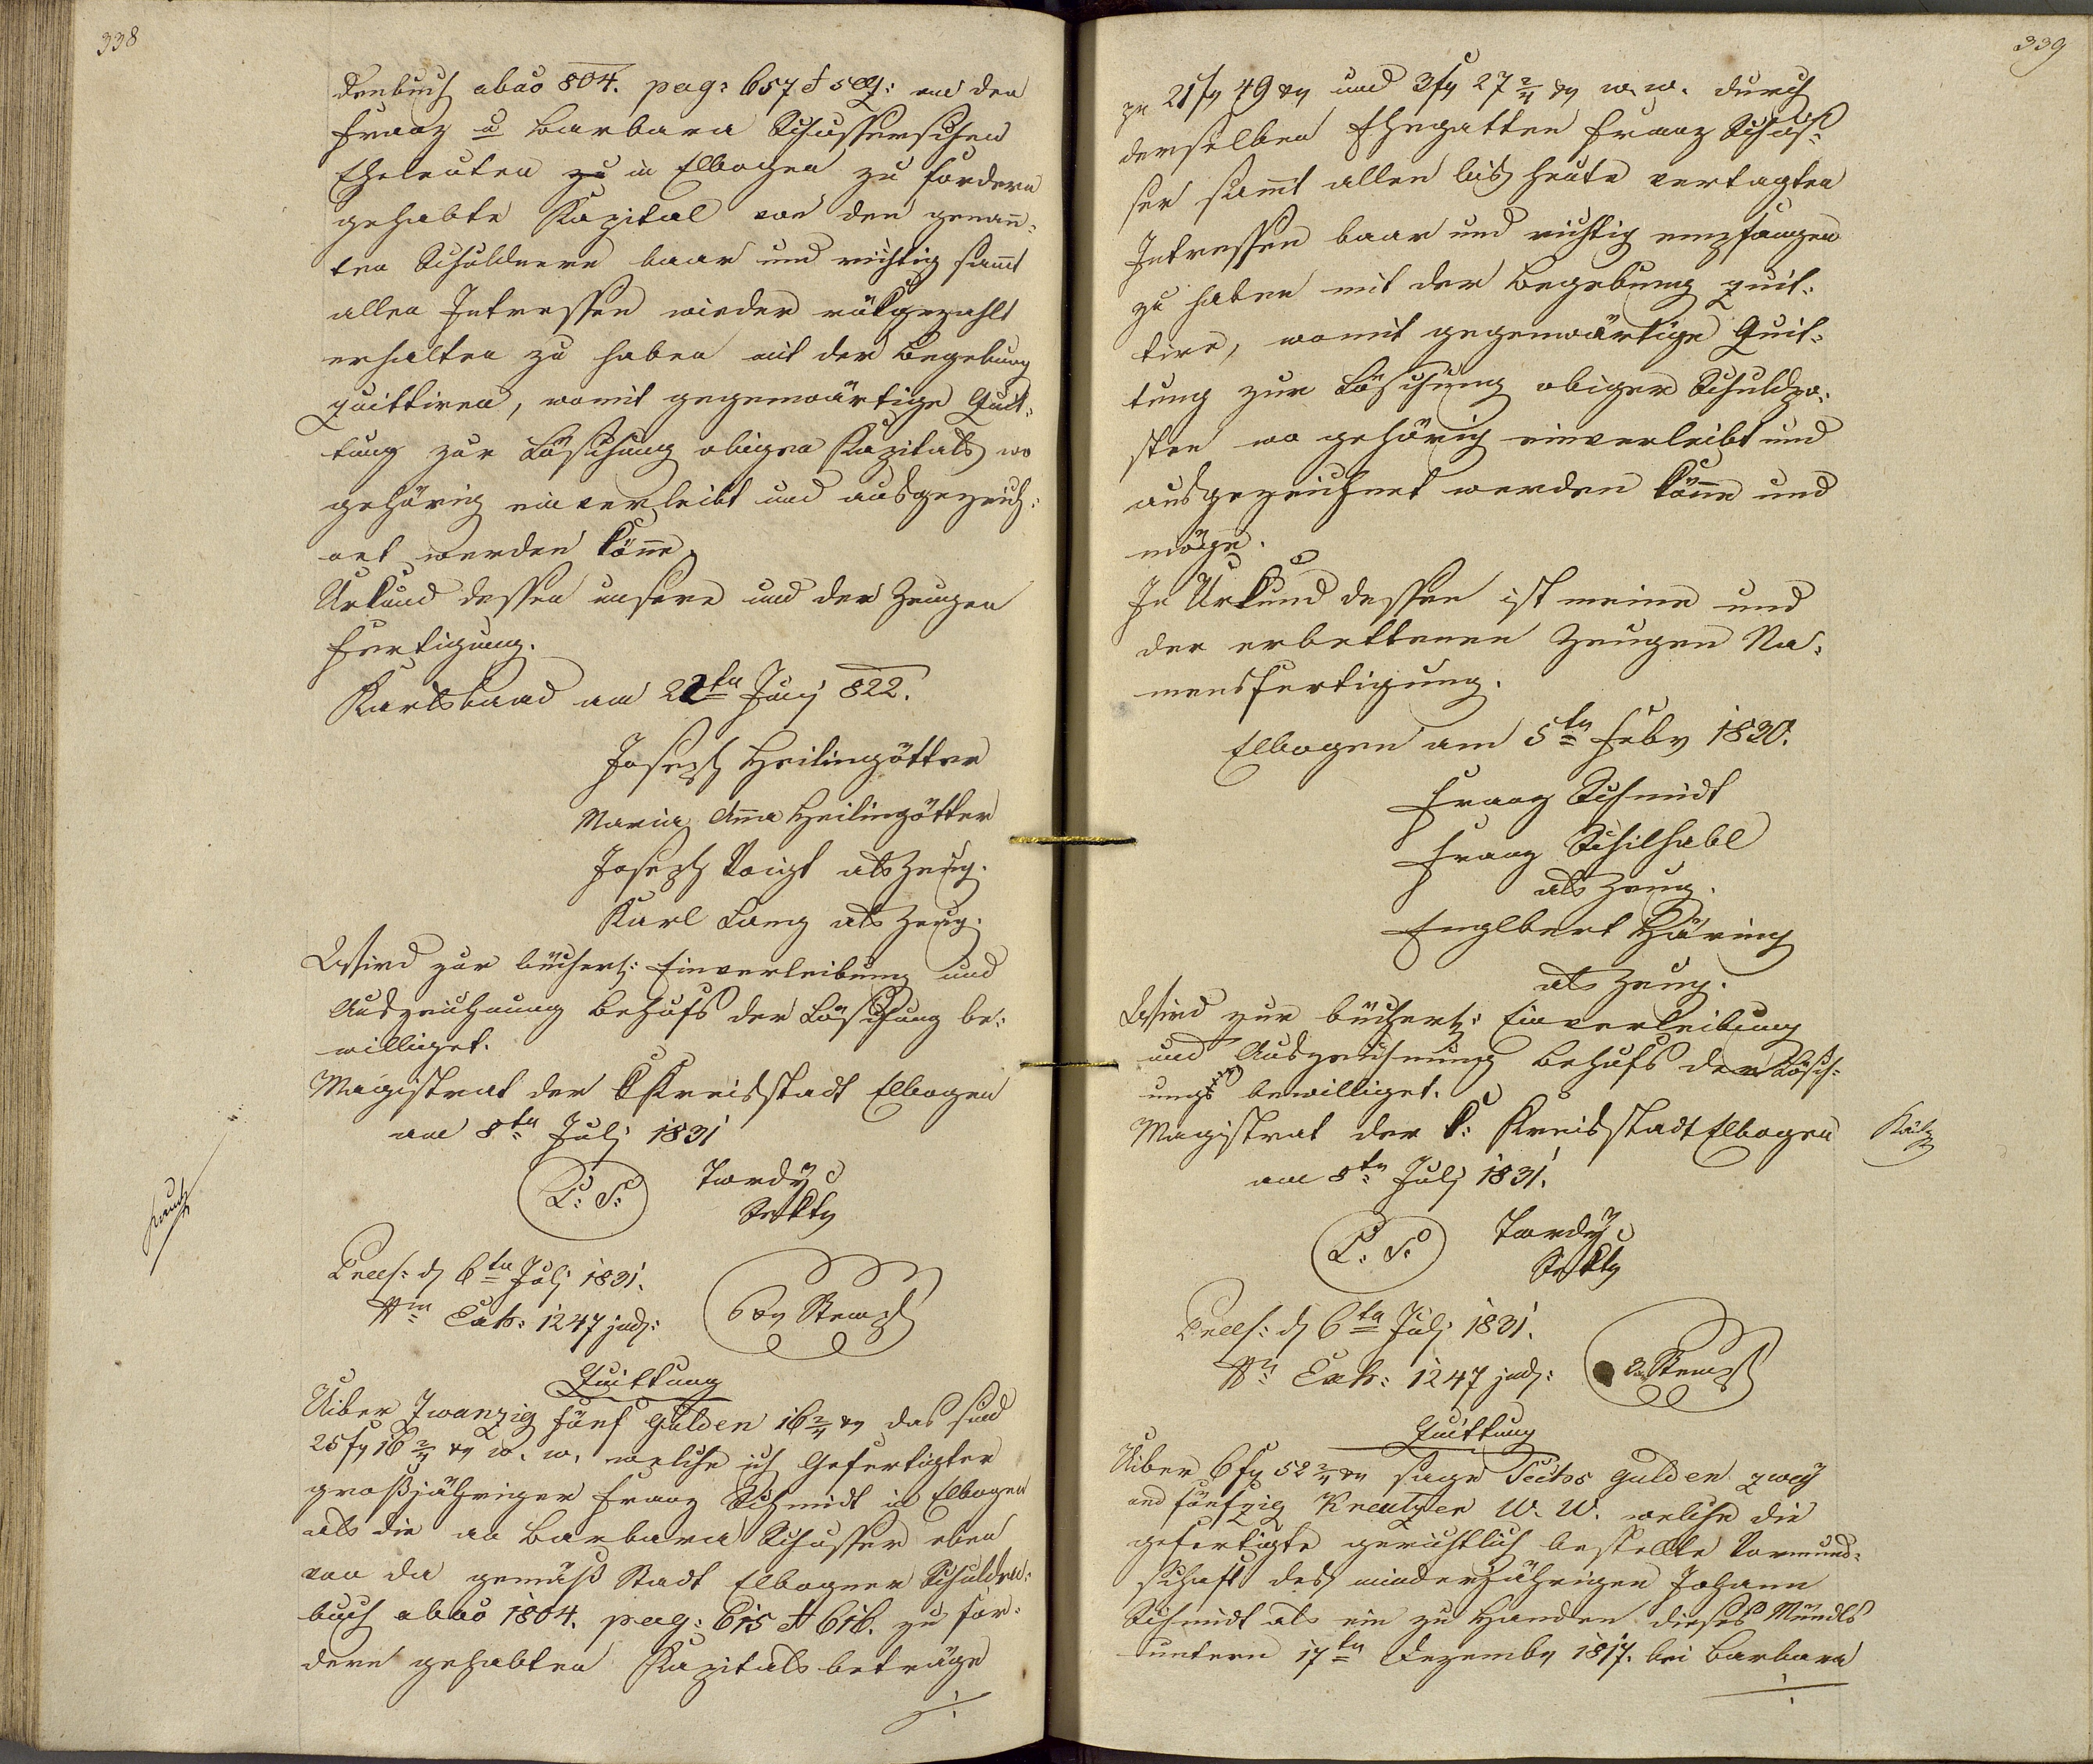 338
denbuch ab ao 804. pag: 657 et seq: an den
Franz u Barbara Schusserischen
Eheleuten zu in Elbogen zu fordern
gehabte Kapital von den genan̄-
ten Schuldnern baar und richtig sam̄t
allen Intressen wieder rükgezahlt
erhalten zu haben mit der Begebung
quittiren, womit gegenwärtige Quit-
tung zur Löschung obigen Kapitals wo
gehörig einverleibt und ausgezeich-
net werden kön̄e.
Urkund dessen unsere und der Zeugen
Fertigung.
Karlsbaad am 22ten Juny 822.
Joseph Heilingötter
Maria Anna Heilingötter
Joseph Voigt als Zeug.
Karl Lang als Zeug.
Wird zur bücherl: Einverleibung und
Auszeichnung behufs der Löschung be-
williget.
Magistrat der K Kreisstadt Elbogen
am 8ten July 1831
L: S: Tordy
Sekty
Praes: d 6ten July 1831.
Nro Exh: 1247 jud:
6 xr Stemp
Quittung
Uiber Zwanzig fünf Gulden 16 2/4 xr das sind
25 fr 16 2/4 xr W. W. welche ich Gefertigter
großjähriger Franz Schmidt in Elbogen
als die an Barbara Schusser eben
von da gemäß Stadt Elbogner Schulden-
buch ab ao 1804. pag: 615 et 616. zu for-
dern gehabten Kapitalsbeträge
./.
339
zu 21 fr 49 xr und 3 fr 27 2/4 xr W. W. durch
derselben Ehegatten Franz Schus-
ser sam̄t allen bis heute vertagten
Intressen baar und richtig empfangen
zu haben mit der Begebung quit-
tire, womit gegenwärtige Quit-
tung zur Löschung obiger Schuldpo-
sten wo gehörig einverleibt und
ausgezeichnet werden kön̄e und
möge.
In Urkund dessen ist meine und
der erbettenen Zeugen Na-
mensfertigung.
Elbogen am 5ten Febr 1830.
Franz Schmidt
Franz Schilhabl
als Zeug.
Englbert Häring
als Zeug.
Wird zur bücherl: Einverleibung
und Auszeichnung behufs der Lösch-
ung bewilliget.
Magistrat der k: Kreisstadt Elbogen
am 8ten July 1831.
L. S. Tordy
Sekty
Praes: d 6ten July 1831.
Nro Exh: 1247 jud:
Stemp
Quittung
Uiber 6 fr 52 2/4 xr sage Sechs Gulden zwey
und fünfzig Kreutzer W. W. welche die
gefertigte gerichtlich bestellte Vormund-
schaft des minderjährigen Johann
Schmidt als ein zu Handen dieses Mündls
untern 17ten Dezembr 1817. bei Barbara
./.